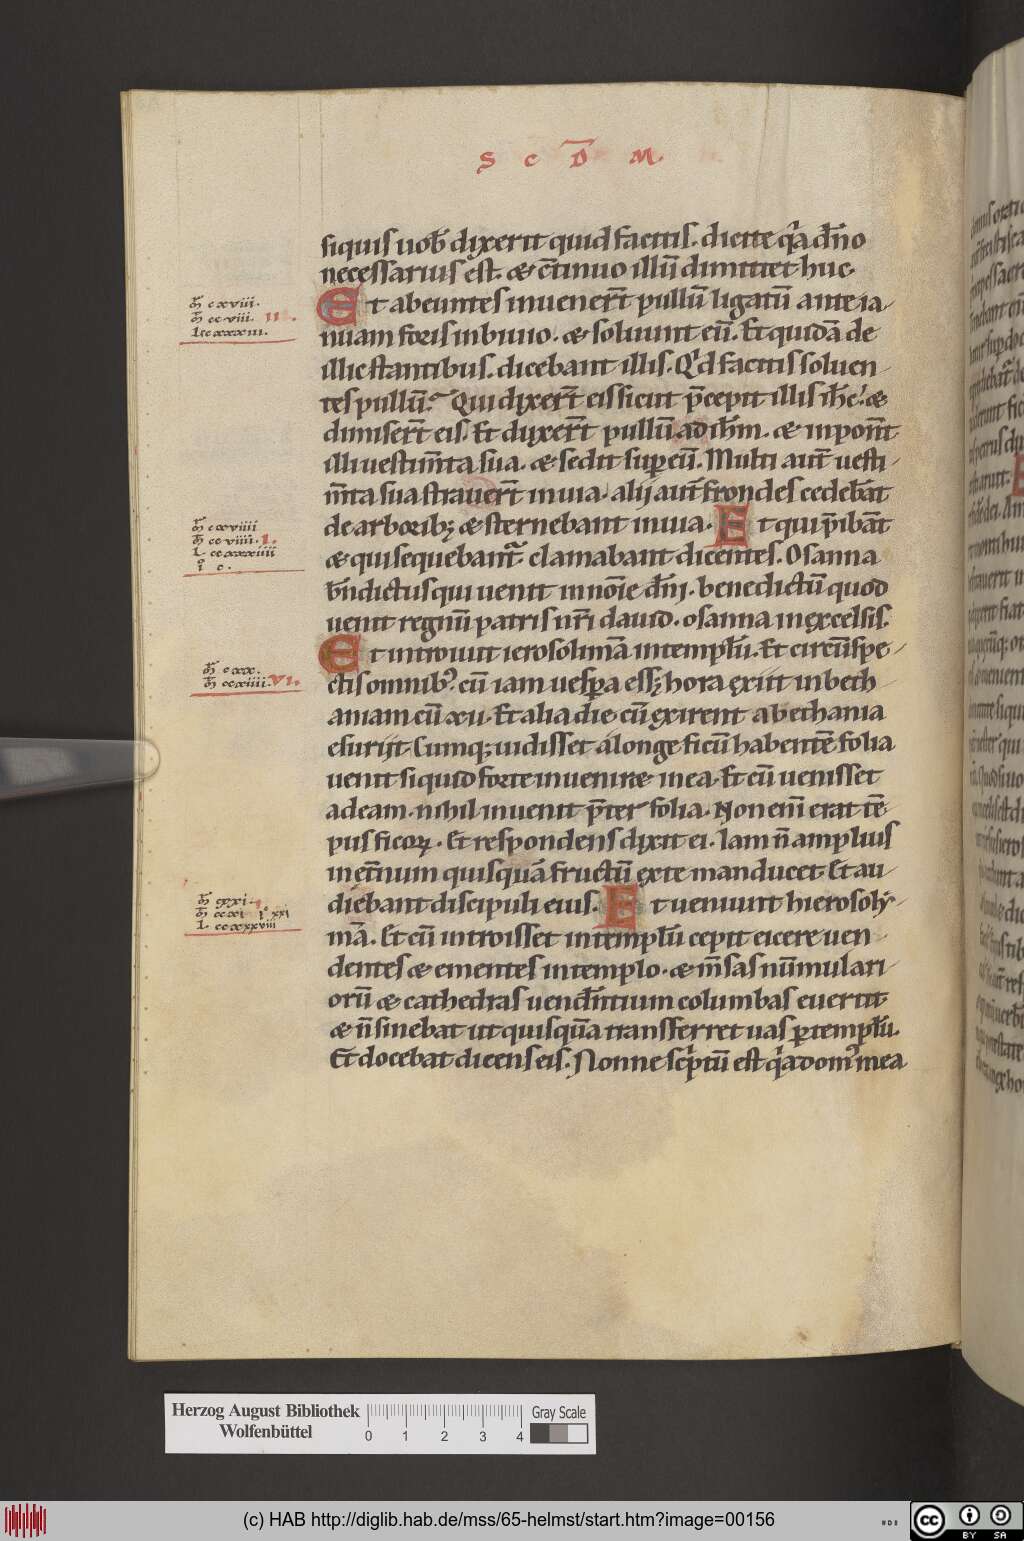 S C D̅ M.
siquis uob̅ dixerit quid facitis. dicite q̅a dn̅o
necessarius est. & c̅tinuo illu̅ dimittet huc.
m̅ c xviii.
m̅ cc viii. II.
l cc xxxii.
Et abeuntes inuener̅t pullu̅ ligatu̅ ante ia-
nuam foris in biuio. & soluunt eu̅. Et quida̅ de
illic stantibus. dicebant illis. Qd̅ facitis soluen-
tes pullu̅? Qui dixer̅t eis sicut p̅cepit illis ih̅c. &
dimiser̅t eis. Et duxer̅t pullu̅ ad ih̅m. & inpon̅t
illi uestim̅ta sua. & sedit sup eu̅. Multi aut̅ uesti-
m̅ta sua strauer̅t in uia. alij aut̅ frondes cedeb̅at
m̅ c xviiii
m̅ cc viiii. I.
l cc xxxiiii
i̊ c.
de arborib; & sternebant in uia. Et qui p̅iba̅t
& qui sequebant̅ clamabant dicentes. Osanna
b̅ndictus qui uenit in no̅ie dn̅j. benedictu̅ quod
uenit regnu̅ patris nr̅i dauid. osanna in excelsis.
Et introiuit ierosolima̅ in templu̅. Et circu̅spe-
m̅ c xxx.
m̅ cc xiiii. VI.
ctis omnib; cu̅ iam uespa ess; hora exiit in beth-
aniam cu̅ xii. Et alia die cu̅ exirent a bethania
esurijt Cumq; uidisset a longe ficu̅ habente̅ folia
uenit siquid forte inueniret in ea. Et cu̅ uenisset
ad eam. nihil inuenit p̅ter folia. Non eni̅ erat te̅-
pus ficoꝝ. Et respondens dixit ei. Iam n̅ amplius
in et̅num quisqua̅ fructu̅ ex te manducet. Et au-
m̅ cc xi i̊ xxi
l cc xxxviii
diebant discipuli eius. Et ueniunt hierosoly-
ma̅. Et cu̅ introisset in templu̅ cepit eicere uen-
dentes & ementes in templo. & m̅sas nu̅mulari-
oru̅ & cathedras uende̅ntium columbas euertit
& n̅ sinebat ut quisqua̅ transferret uas per templu̅.
Et docebat dicens eis. Nonne scp̅tu̅ est q̅a dom; mea
Herzog August Bibliothek
Wolfenbüttel
0 1 2 3 4
Gray Scale
(c) HAB http://diglib.hab.de/mss/65-helmst/start.htm?image=00156
cc BY SA